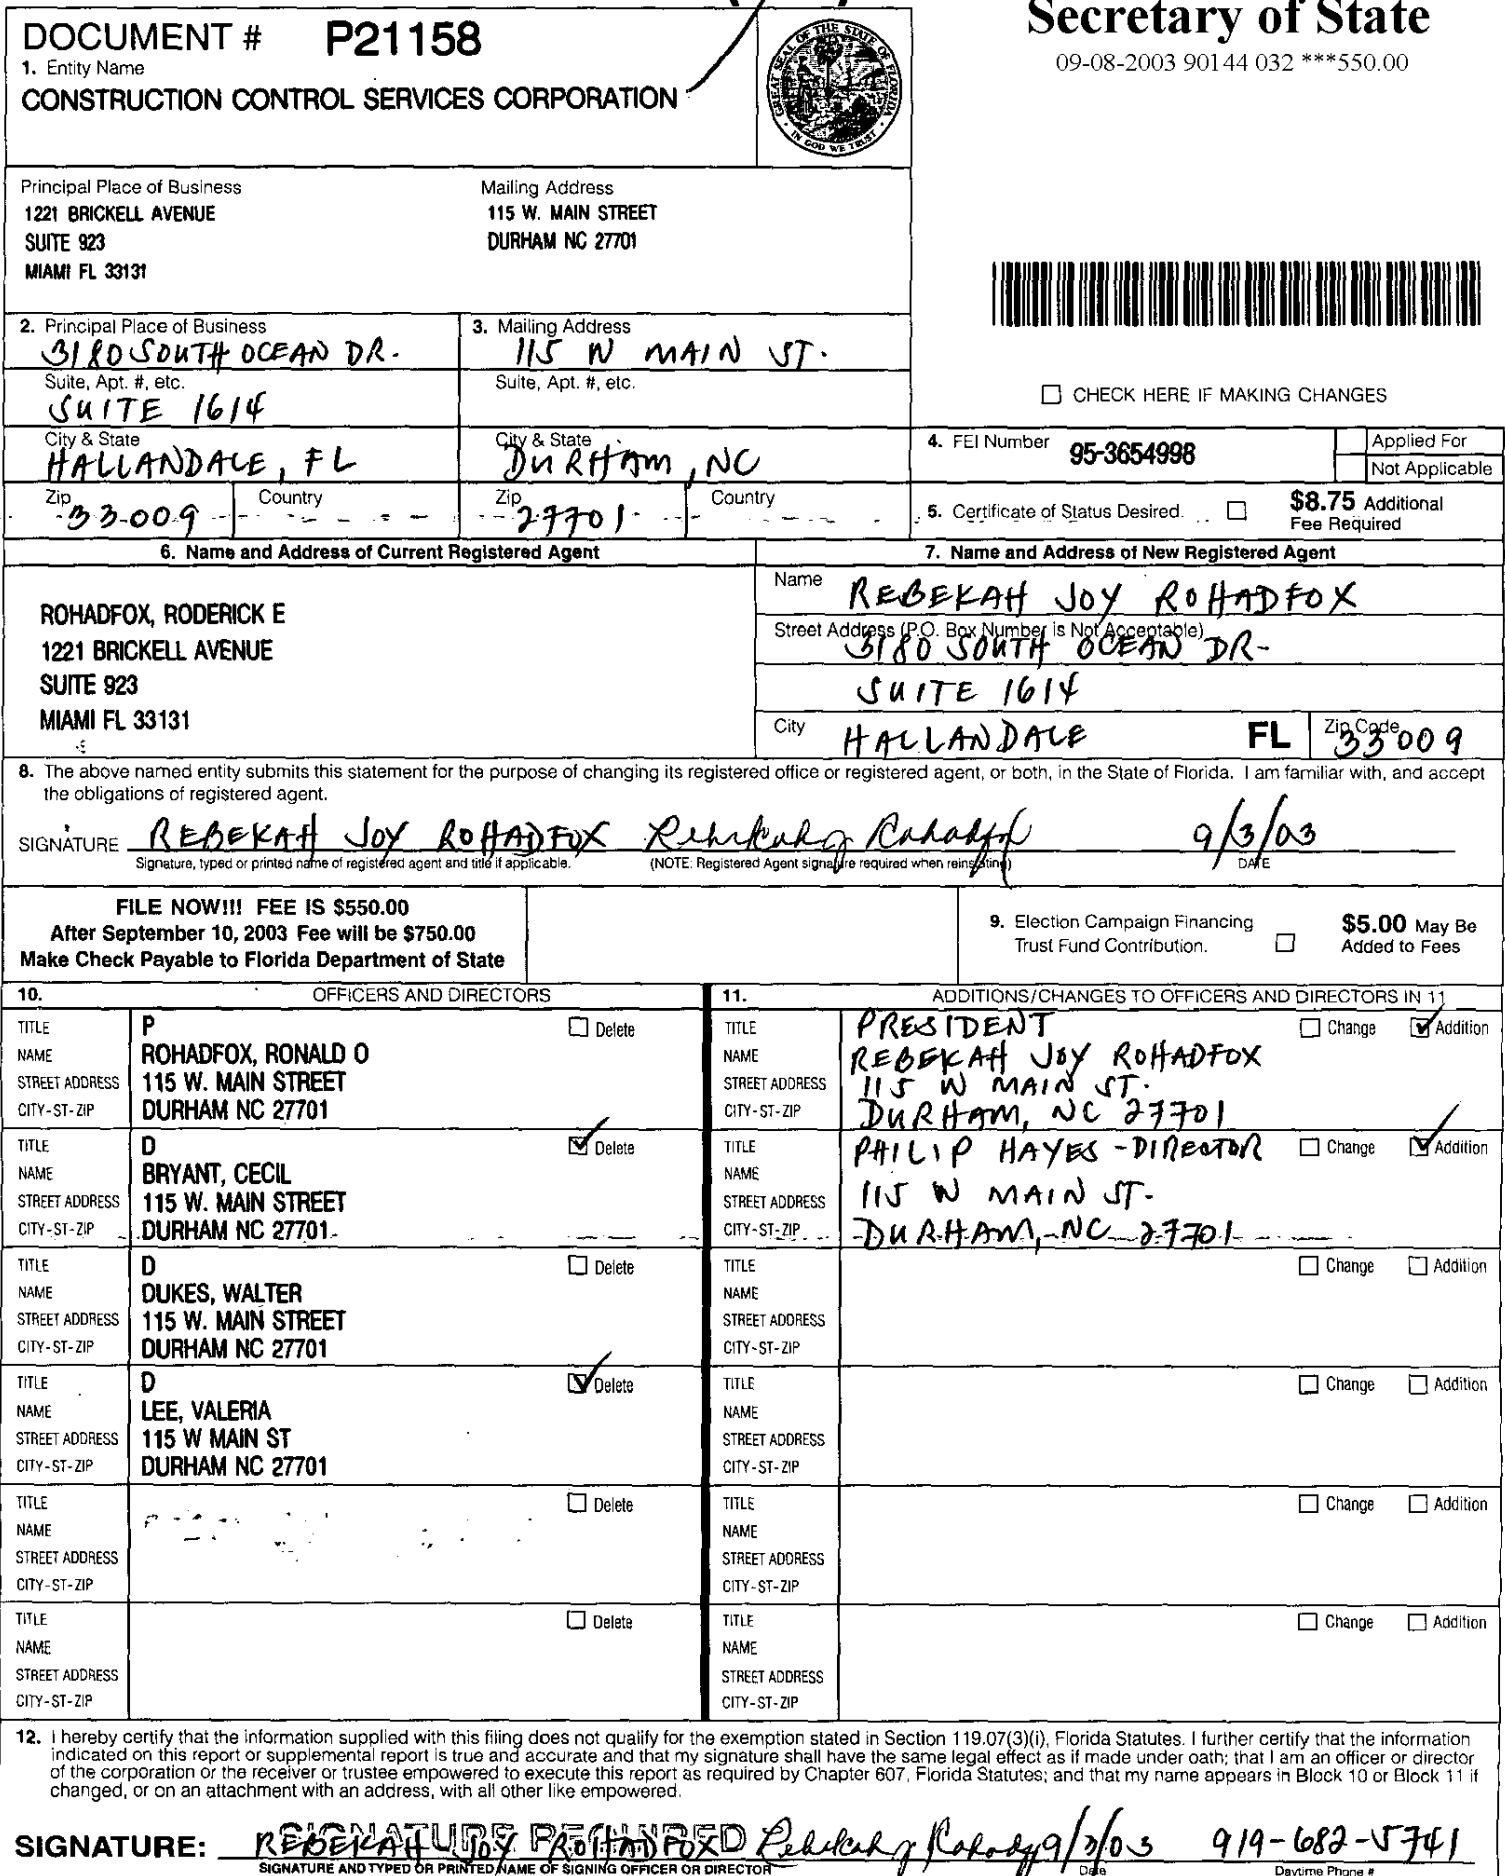 Secretary of State
09-08-2003 90144 032 ***550.00
DOCUMENT # P21158
1. Entity Name
CONSTRUCTION CONTROL SERVICES CORPORATION
GREAT SEAL OF THE STATE OF FLORIDA
IN GOD WE TRUST
Principal Place of Business
1221 BRICKELL AVENUE
SUITE 923
MIAMI FL 33131
Mailing Address
115 W. MAIN STREET
DURHAM NC 27701
2. Principal Place of Business
3180 SOUTH OCEAN DR.
Suite, Apt. #, etc.
SUITE 1614
City & State
HALLANDALE, FL
Zip
33009
Country
3. Mailing Address
115 W MAIN ST.
Suite, Apt. #, etc.
City & State
DURHAM, NC
Zip
27701
Country
CHECK HERE IF MAKING CHANGES
4. FEI Number
95-3654998
Applied For
Not Applicable
5. Certificate of Status Desired
$8.75 Additional
Fee Required
6. Name and Address of Current Registered Agent
ROHADFOX, RODERICK E
1221 BRICKELL AVENUE
SUITE 923
MIAMI FL 33131
7. Name and Address of New Registered Agent
Name
REBEKAH JOY ROHADFOX
Street Address (P.O. Box Number is Not Acceptable)
3180 SOUTH OCEAN DR-
SUITE 1614
City
HALLANDALE
FL
Zip Code
33009
8. The above named entity submits this statement for the purpose of changing its registered office or registered agent, or both, in the State of Florida. I am familiar with, and accept
the obligations of registered agent.
SIGNATURE REBEKAH JOY ROHADFOX Rebekah J Rohadfox 9/3/03
Signature, typed or printed name of registered agent and title if applicable. (NOTE: Registered Agent signature required when reinstating) DATE
FILE NOW!!! FEE IS $550.00
After September 10, 2003 Fee will be $750.00
Make Check Payable to Florida Department of State
9. Election Campaign Financing
Trust Fund Contribution.
$5.00 May Be
Added to Fees
10. OFFICERS AND DIRECTORS
TITLE P Delete
NAME ROHADFOX, RONALD O
STREET ADDRESS 115 W. MAIN STREET
CITY-ST-ZIP DURHAM NC 27701
TITLE D Delete
NAME BRYANT, CECIL
STREET ADDRESS 115 W. MAIN STREET
CITY-ST-ZIP DURHAM NC 27701
TITLE D Delete
NAME DUKES, WALTER
STREET ADDRESS 115 W. MAIN STREET
CITY-ST-ZIP DURHAM NC 27701
TITLE D Delete
NAME LEE, VALERIA
STREET ADDRESS 115 W MAIN ST
CITY-ST-ZIP DURHAM NC 27701
TITLE Delete
NAME
STREET ADDRESS
CITY-ST-ZIP
TITLE Delete
NAME
STREET ADDRESS
CITY-ST-ZIP
11. ADDITIONS/CHANGES TO OFFICERS AND DIRECTORS IN 11
TITLE PRESIDENT Change Addition
NAME REBEKAH JOY ROHADFOX
STREET ADDRESS 115 W MAIN ST.
CITY-ST-ZIP DURHAM, NC 27701
TITLE PHILIP HAYES - DIRECTOR Change Addition
NAME
STREET ADDRESS 115 W MAIN ST-
CITY-ST-ZIP DURHAM, NC 27701
TITLE Change Addition
NAME
STREET ADDRESS
CITY-ST-ZIP
TITLE Change Addition
NAME
STREET ADDRESS
CITY-ST-ZIP
TITLE Change Addition
NAME
STREET ADDRESS
CITY-ST-ZIP
TITLE Change Addition
NAME
STREET ADDRESS
CITY-ST-ZIP
12. I hereby certify that the information supplied with this filing does not qualify for the exemption stated in Section 119.07(3)(i), Florida Statutes. I further certify that the information
indicated on this report or supplemental report is true and accurate and that my signature shall have the same legal effect as if made under oath; that I am an officer or director
of the corporation or the receiver or trustee empowered to execute this report as required by Chapter 607, Florida Statutes; and that my name appears in Block 10 or Block 11 if
changed, or on an attachment with an address, with all other like empowered.
SIGNATURE REQUIRED
SIGNATURE: REBEKAH JOY ROHADFOX Rebekah J Rohadfox 9/3/03 919-682-5741
SIGNATURE AND TYPED OR PRINTED NAME OF SIGNING OFFICER OR DIRECTOR Date Daytime Phone #